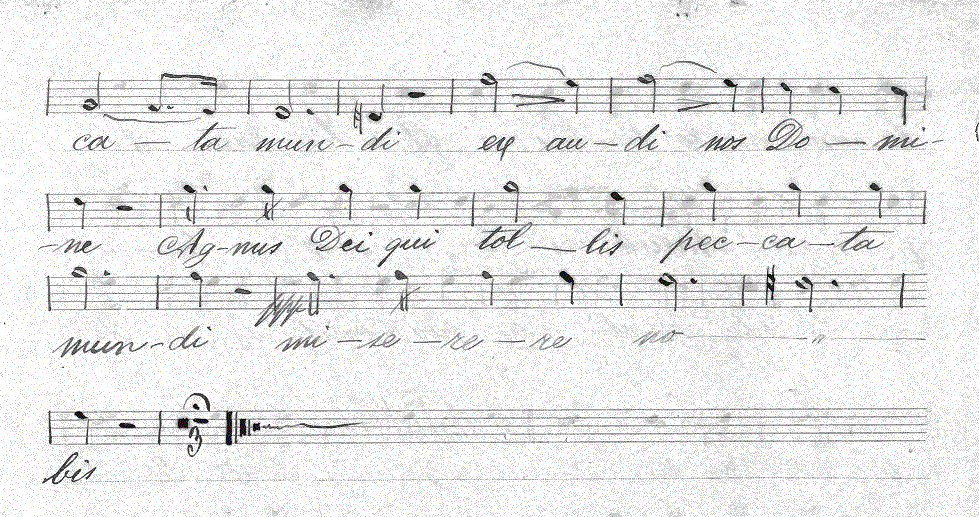 ca — ta mun-di ex au-di nos Do — mi-
-ne Ag-nus Dei qui tol — lis pec-ca-ta
mun-di ppp mi-se-re-re no
3
bis